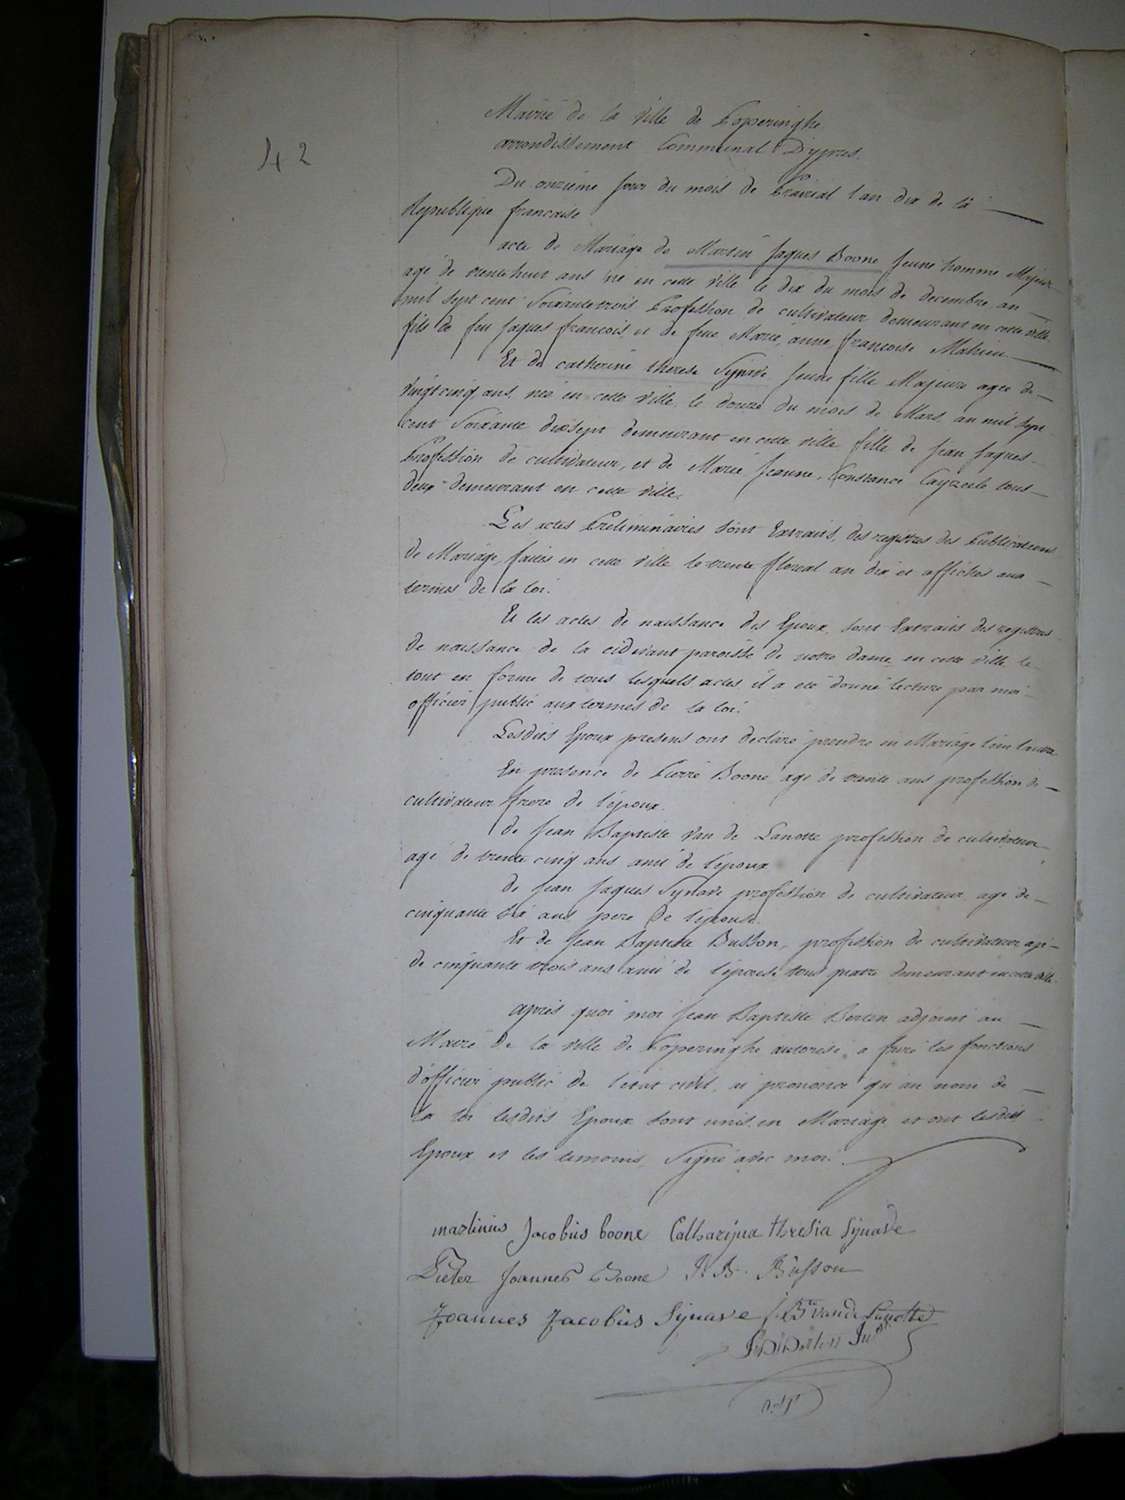 42
Mairie de la ville de Poperinghe
arrondissement Communal D'ypres.
Du onzième jour du mois de Prairial l'an dix de la
Republique française
acte de Mariage de Martin Jaques Boone Jeune homme Majeur
agé de trente huit ans né en cette ville le dix du mois de decembre an
mil sept cent Soixante trois Profession de cultivateur demeurant en cette ville
fils de feu Jaques francois, et de feue Marie anne françoise Mahieu
Et de catherine therese Synave Jeune fille Majeure agée de
vingt cinq ans, née en cette ville, le douze du mois de Mars, an mil sept
cent Soixante dixsept demeurant en cette ville fille de Jean Jaques
Profession de cultivateur, et de Marie Jeanne, Constance Cayzeele tous
deux demeurant en cette ville.
Les actes Preliminaires sont Extraits, des registres des Publications
de Mariage, faites en cette ville le trente floreal an dix et affichés aux
termes de la loi.
Et les actes de naissance des Epoux, sont Extraits des registres
de naissance de la cidevant paroisse de notre dame en cette ville le
tout en forme de tous lesquels actes il a eté donné lecture par moi
officier public aux termes de la loi.
Lesdits Epoux presens ont declaré prendre en Mariage l'un l'autre
En presence de Pierre Boone agé de trente ans profession de
cultivateur frere de l'époux.
de Jean Baptiste Van de Lanotte profession de cultivateur
agé de trente cinq ans ami de l'époux
de Jean Jaques Synave profession de cultivateur agé de
cinquante six ans pere de l'épouse.
Et de Jean Baptiste Busson, profession de cultivateur agé
de cinquante trois ans ami de l'épouse, tous quatre demeurant en cette ville.
après quoi moi Jean Baptiste Berten adjoint au
Maire de la ville de Poperinghe autorisé, a faire les fonctions
d'officier public de l'état civil, ai prononcé qu'au nom de
la loi lesdits Epoux sont unis, en Mariage et ont lesdits
Epoux et les temoins, Signé avec moi.
martinus Jacobus boone Catharijna thresia Sijnave
Pieter Joannes Boone J. B. Busson
Joannes Jacobus Sijnave J: Bte vande Lanotte